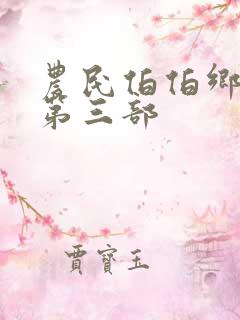 農民伯伯鄉
第三部
賈寶玉